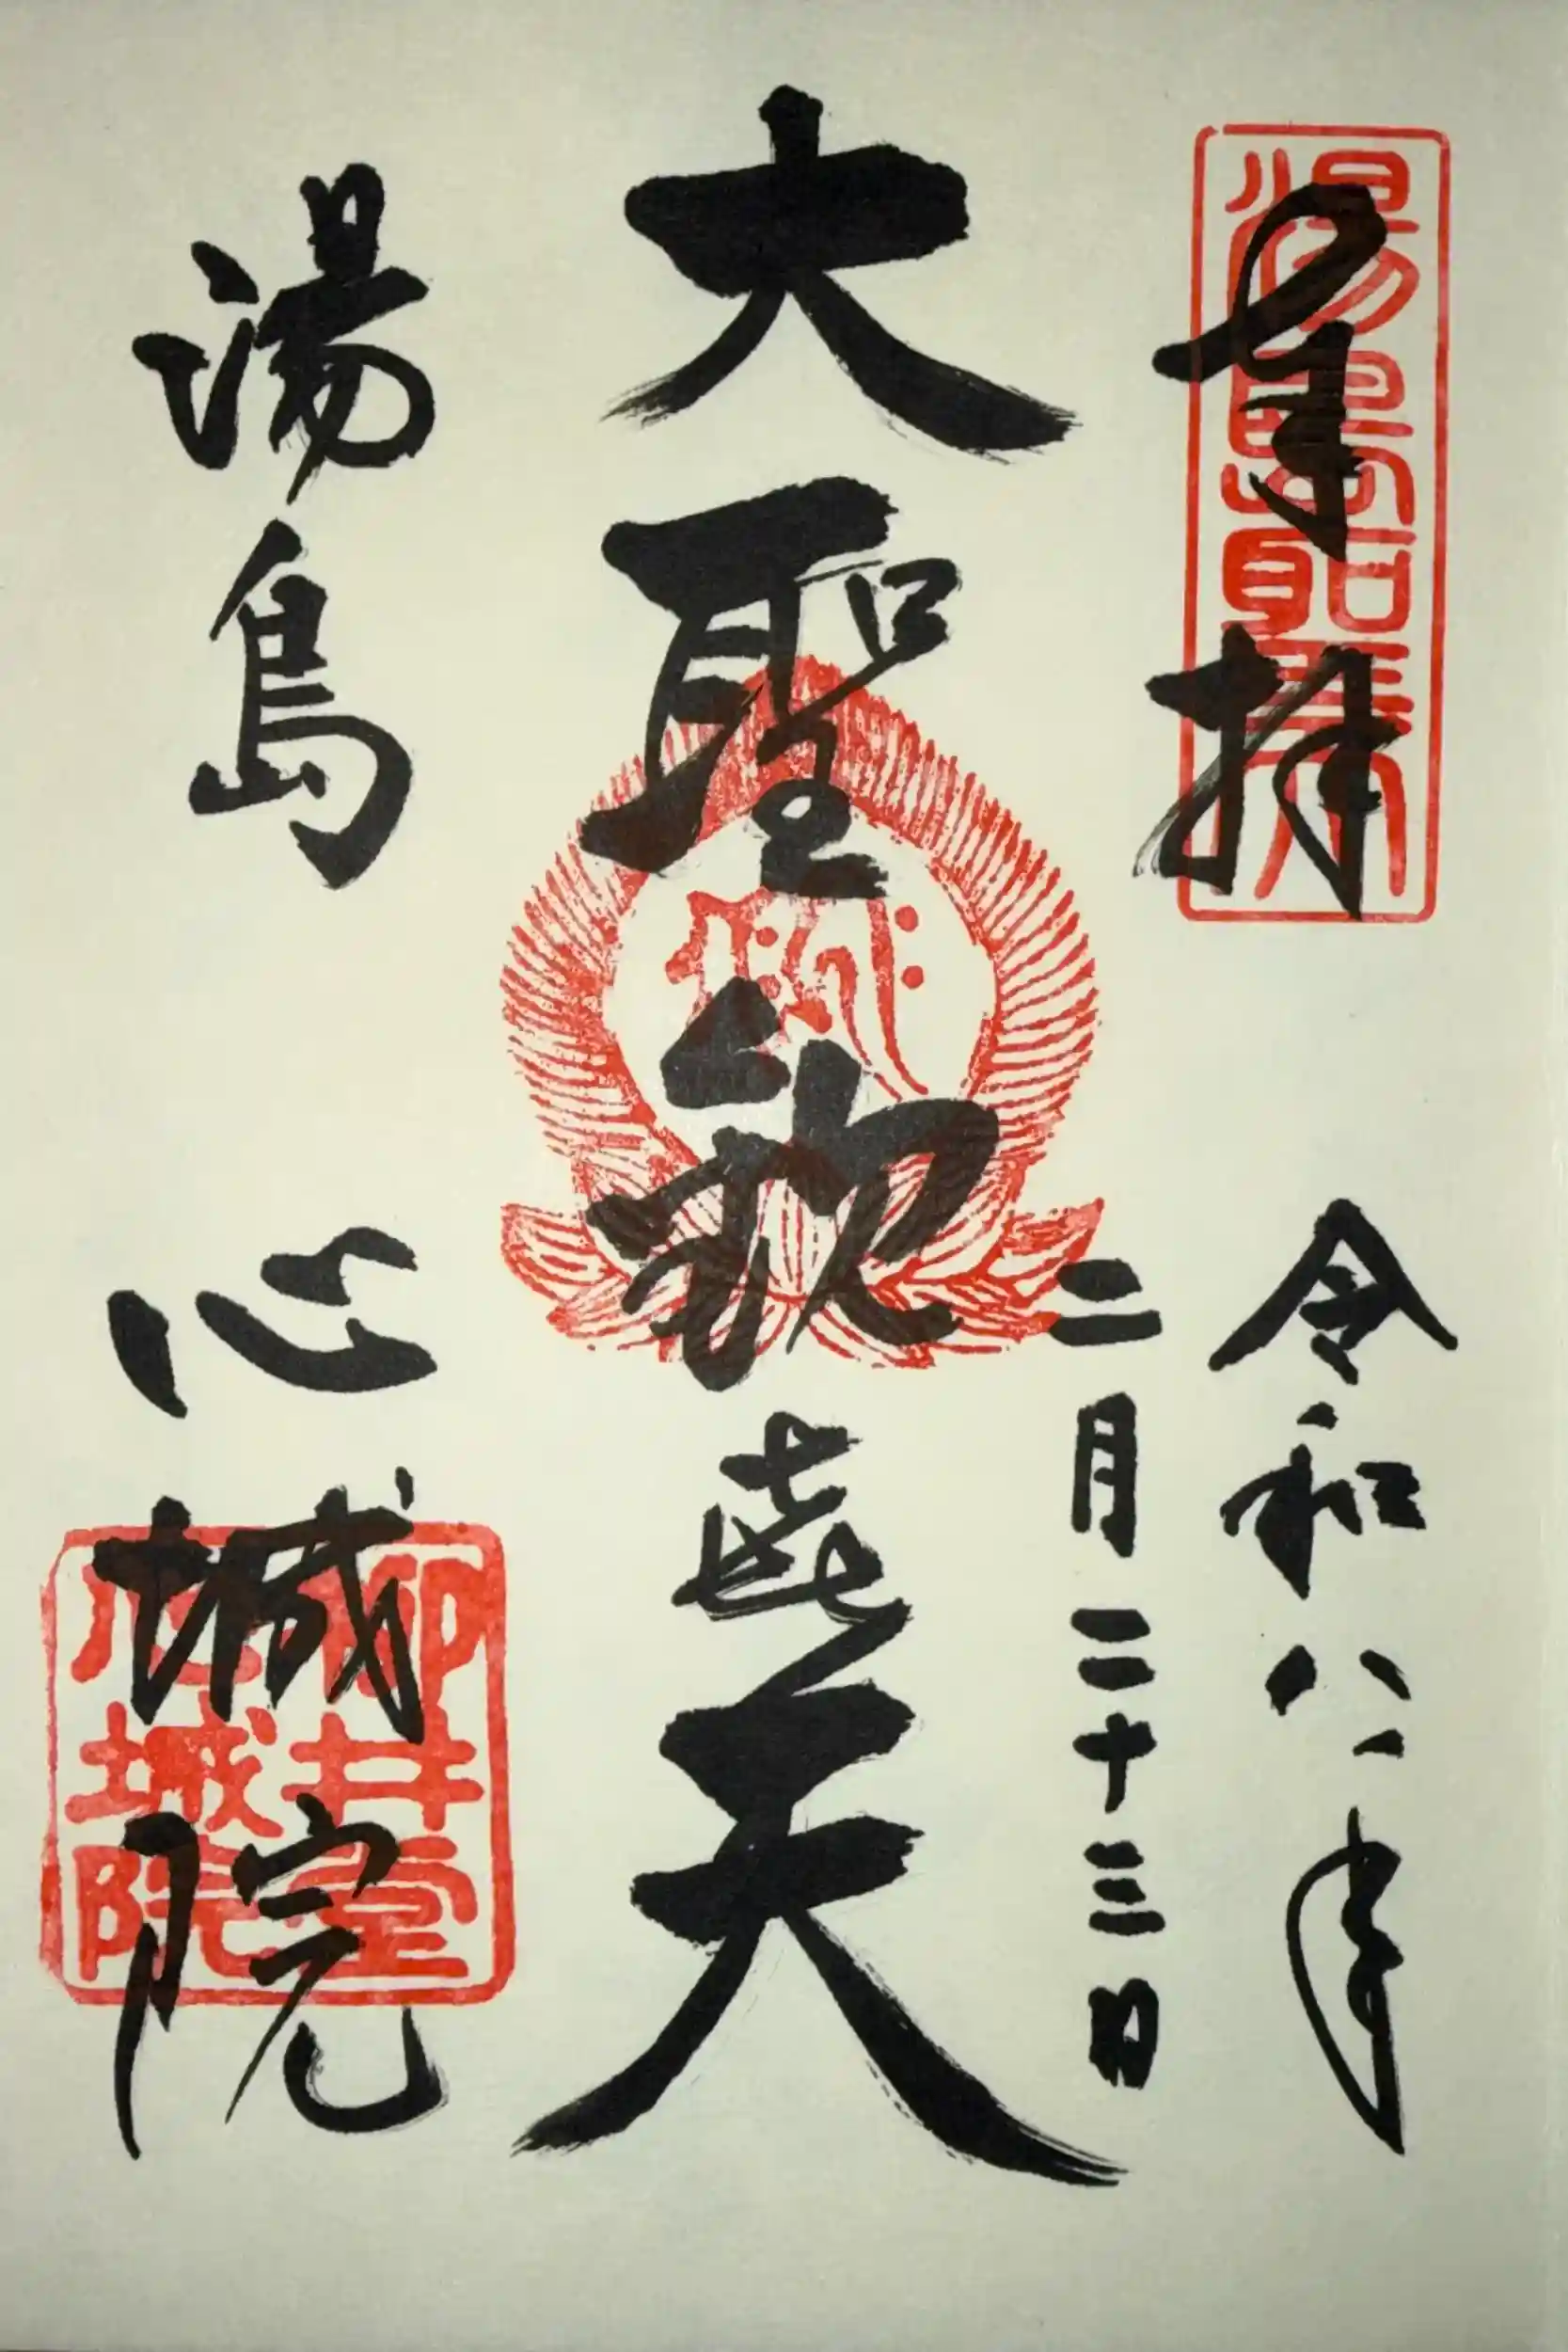 湯島聖天
奉拝
令和八年
二月二十三日
大聖歓喜天
湯島 心城院
柳井堂
心城院